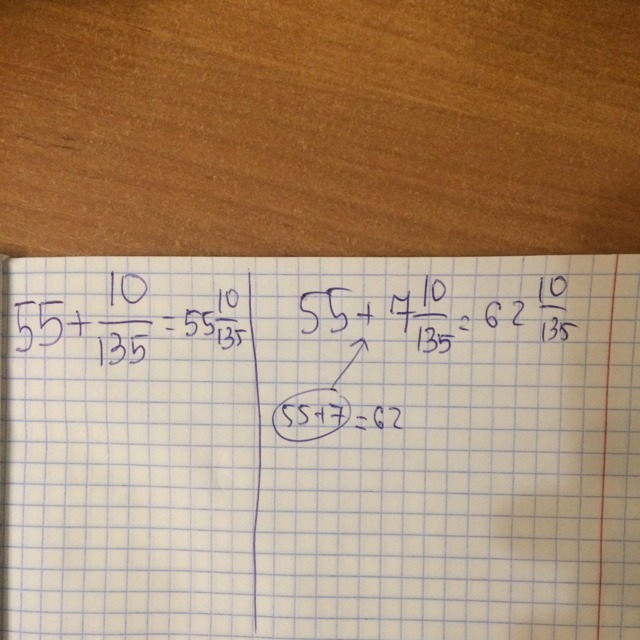 55 + 10/135 = 55 10/135
55 + 7 10/135 = 62 10/135
55+7 = 62